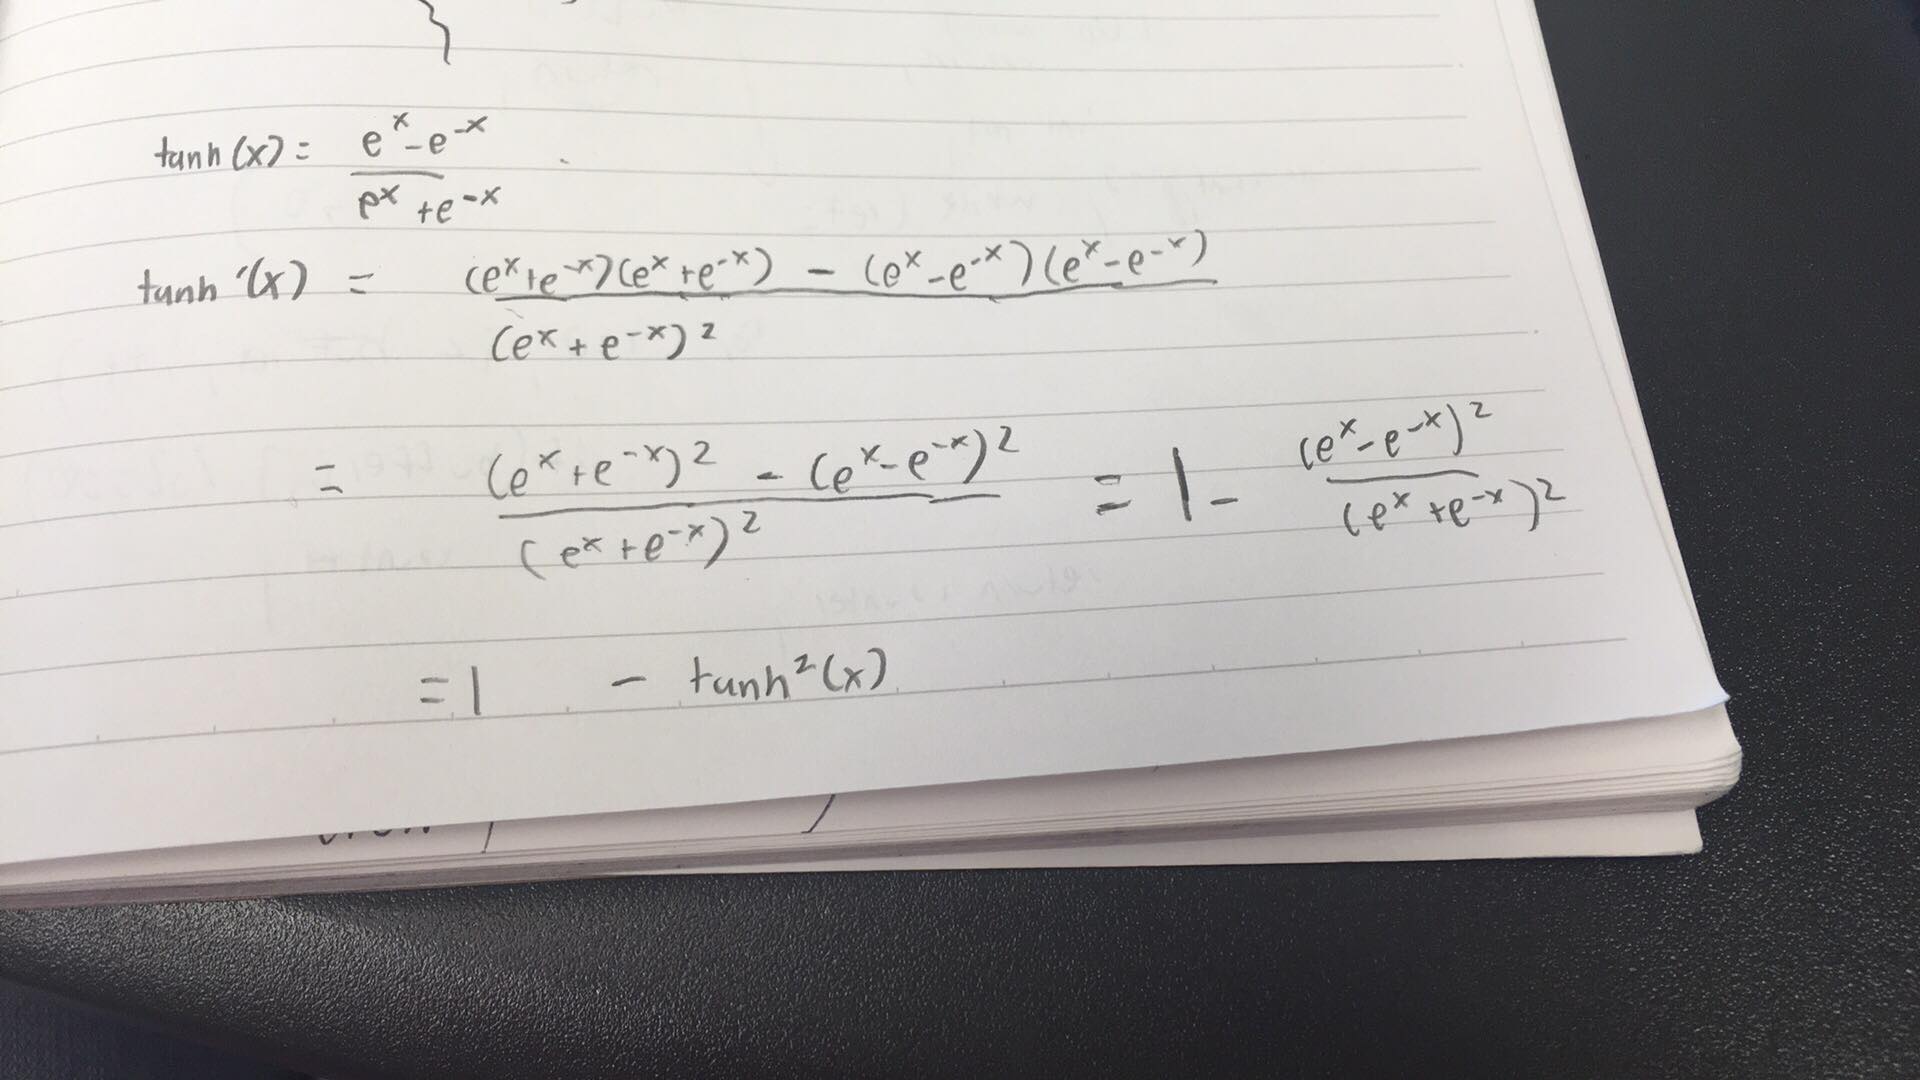 tanh(x) = (e^x - e^-x) / (e^x + e^-x)
tanh'(x) = ((e^x + e^-x)(e^x + e^-x) - (e^x - e^-x)(e^x - e^-x)) / (e^x + e^-x)^2
= ((e^x + e^-x)^2 - (e^x - e^-x)^2) / (e^x + e^-x)^2 = 1 - (e^x - e^-x)^2 / (e^x + e^-x)^2
= 1 - tanh^2(x)